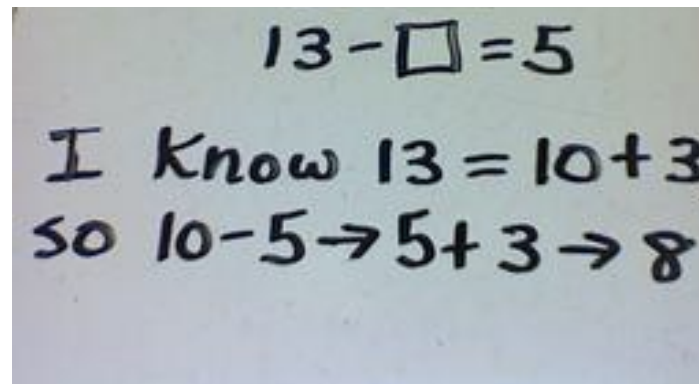 13-□=5
I Know 13=10+3
so 10-5→5+3→8